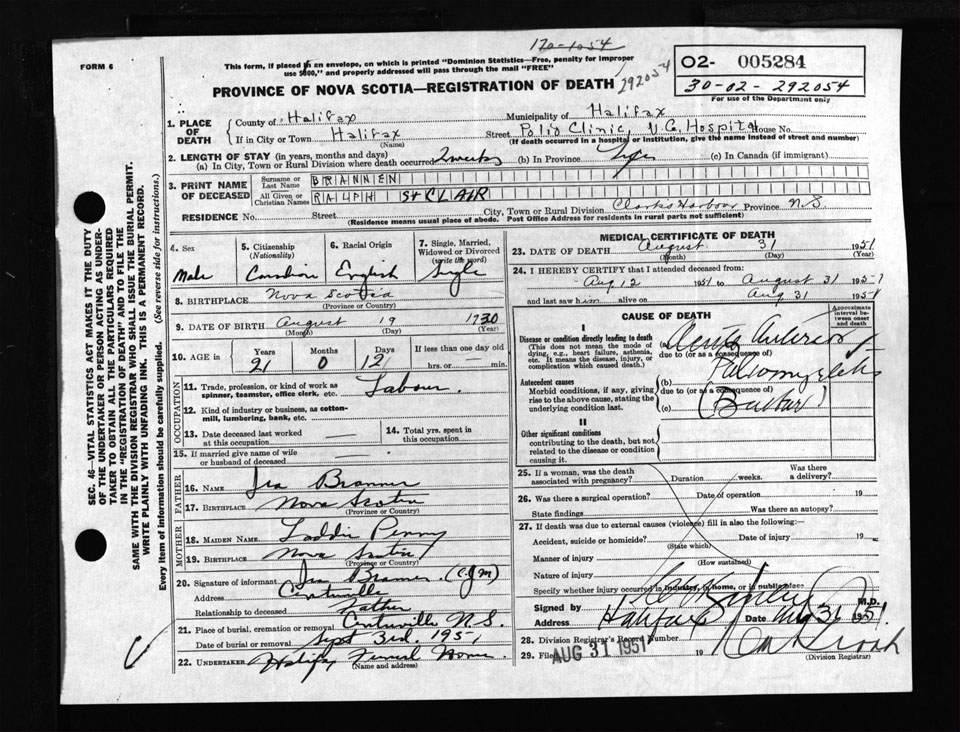 170-1054
FORM 6
This form, if placed in an envelope, on which is printed "Dominion Statistics—Free, penalty for improper
use $300," and properly addressed will pass through the mail "FREE"
292054
02- 005284
30-02-292054
For use of the Department only
PROVINCE OF NOVA SCOTIA—REGISTRATION OF DEATH
1. PLACE OF DEATH
County of Halifax Municipality of Halifax
If in City or Town Halifax (Name) Street Polio Clinic, V.G. Hospital House No.
(If death occurred in a hospital or institution, give the name instead of street and number)
2. LENGTH OF STAY (in years, months and days)
(a) In City, Town or Rural Division where death occurred 2 weeks (b) In Province Life (c) In Canada (if immigrant)
3. PRINT NAME OF DECEASED
Surname or Last Name BRANNEN
All Given or Christian Names RALPH St CLAIR
RESIDENCE No. Street City, Town or Rural Division Clarks Harbour Province N.S.
(Residence means usual place of abode. Post Office Address for residents in rural parts not sufficient)
4. Sex Male
5. Citizenship (Nationality) Canadian
6. Racial Origin English
7. Single, Married, Widowed or Divorced (write the word) Single
8. BIRTHPLACE Nova Scotia
(Province or Country)
9. DATE OF BIRTH August 19 1930
(Month) (Day) (Year)
10. AGE in Years 21 Months 0 Days 12 If less than one day old
hrs. or min.
OCCUPATION
11. Trade, profession, or kind of work as spinner, teamster, office clerk, etc. Labour.
12. Kind of industry or business, as cotton-mill, lumbering, bank, etc.
13. Date deceased last worked at this occupation —
14. Total yrs. spent in this occupation
15. If married give name of wife or husband of deceased —
FATHER
16. NAME Ira Brannen
17. BIRTHPLACE Nova Scotia
(Province or Country)
MOTHER
18. MAIDEN NAME Penny
19. BIRTHPLACE Nova Scotia
(Province or Country)
20. Signature of informant Ira Brannen
Address Centreville
Relationship to deceased Father
21. Place of burial, cremation or removal Centreville N.S.
Date of burial or removal Sept 3rd. 1951
22. UNDERTAKER Halifax Funeral Home
(Name and address)
MEDICAL CERTIFICATE OF DEATH
23. DATE OF DEATH August 31 1951
(Month) (Day) (Year)
24. I HEREBY CERTIFY that I attended deceased from:
Aug 12 1951 to August 31 1951
and last saw him alive on Aug 31 1951
CAUSE OF DEATH
Approximate interval between onset and death
I
Disease or condition directly leading to death
(This does not mean the mode of dying, e.g., heart failure, asthenia, etc. It means the disease, injury, or complication which caused death.)
Acute Anterior
due to (or as a consequence of)
Poliomyelitis
Antecedent causes
Morbid conditions, if any, giving rise to the above cause, stating the underlying condition last.
(b)
due to (or as a consequence of)
(c) (Bulbar)
II
Other significant conditions
contributing to the death, but not related to the disease or condition causing it.
25. If a woman, was the death associated with pregnancy? Duration weeks. Was there a delivery?
26. Was there a surgical operation? Date of operation 19
State findings Was there an autopsy?
27. If death was due to external causes (violence) fill in also the following:
Accident, suicide or homicide? (State which) Date of injury 19
Manner of injury (How sustained)
Nature of injury
Specify whether injury occurred in industry, in home, or in public place
Signed by M.D.
Address Halifax Date Aug 31 1951.
28. Division Registrar's Record Number
29. Filed AUG 31 1951 19
(Division Registrar)
SEC. 46—VITAL STATISTICS ACT MAKES IT THE DUTY
OF THE UNDERTAKER OR PERSON ACTING AS UNDER-
TAKER TO OBTAIN ALL THE PARTICULARS REQUIRED
IN THE "REGISTRATION OF DEATH" AND TO FILE THE
SAME WITH THE DIVISION REGISTRAR WHO SHALL ISSUE THE BURIAL PERMIT.
WRITE PLAINLY WITH UNFADING INK. THIS IS A PERMANENT RECORD.
Every item of information should be carefully supplied. (See reverse side for instructions.)